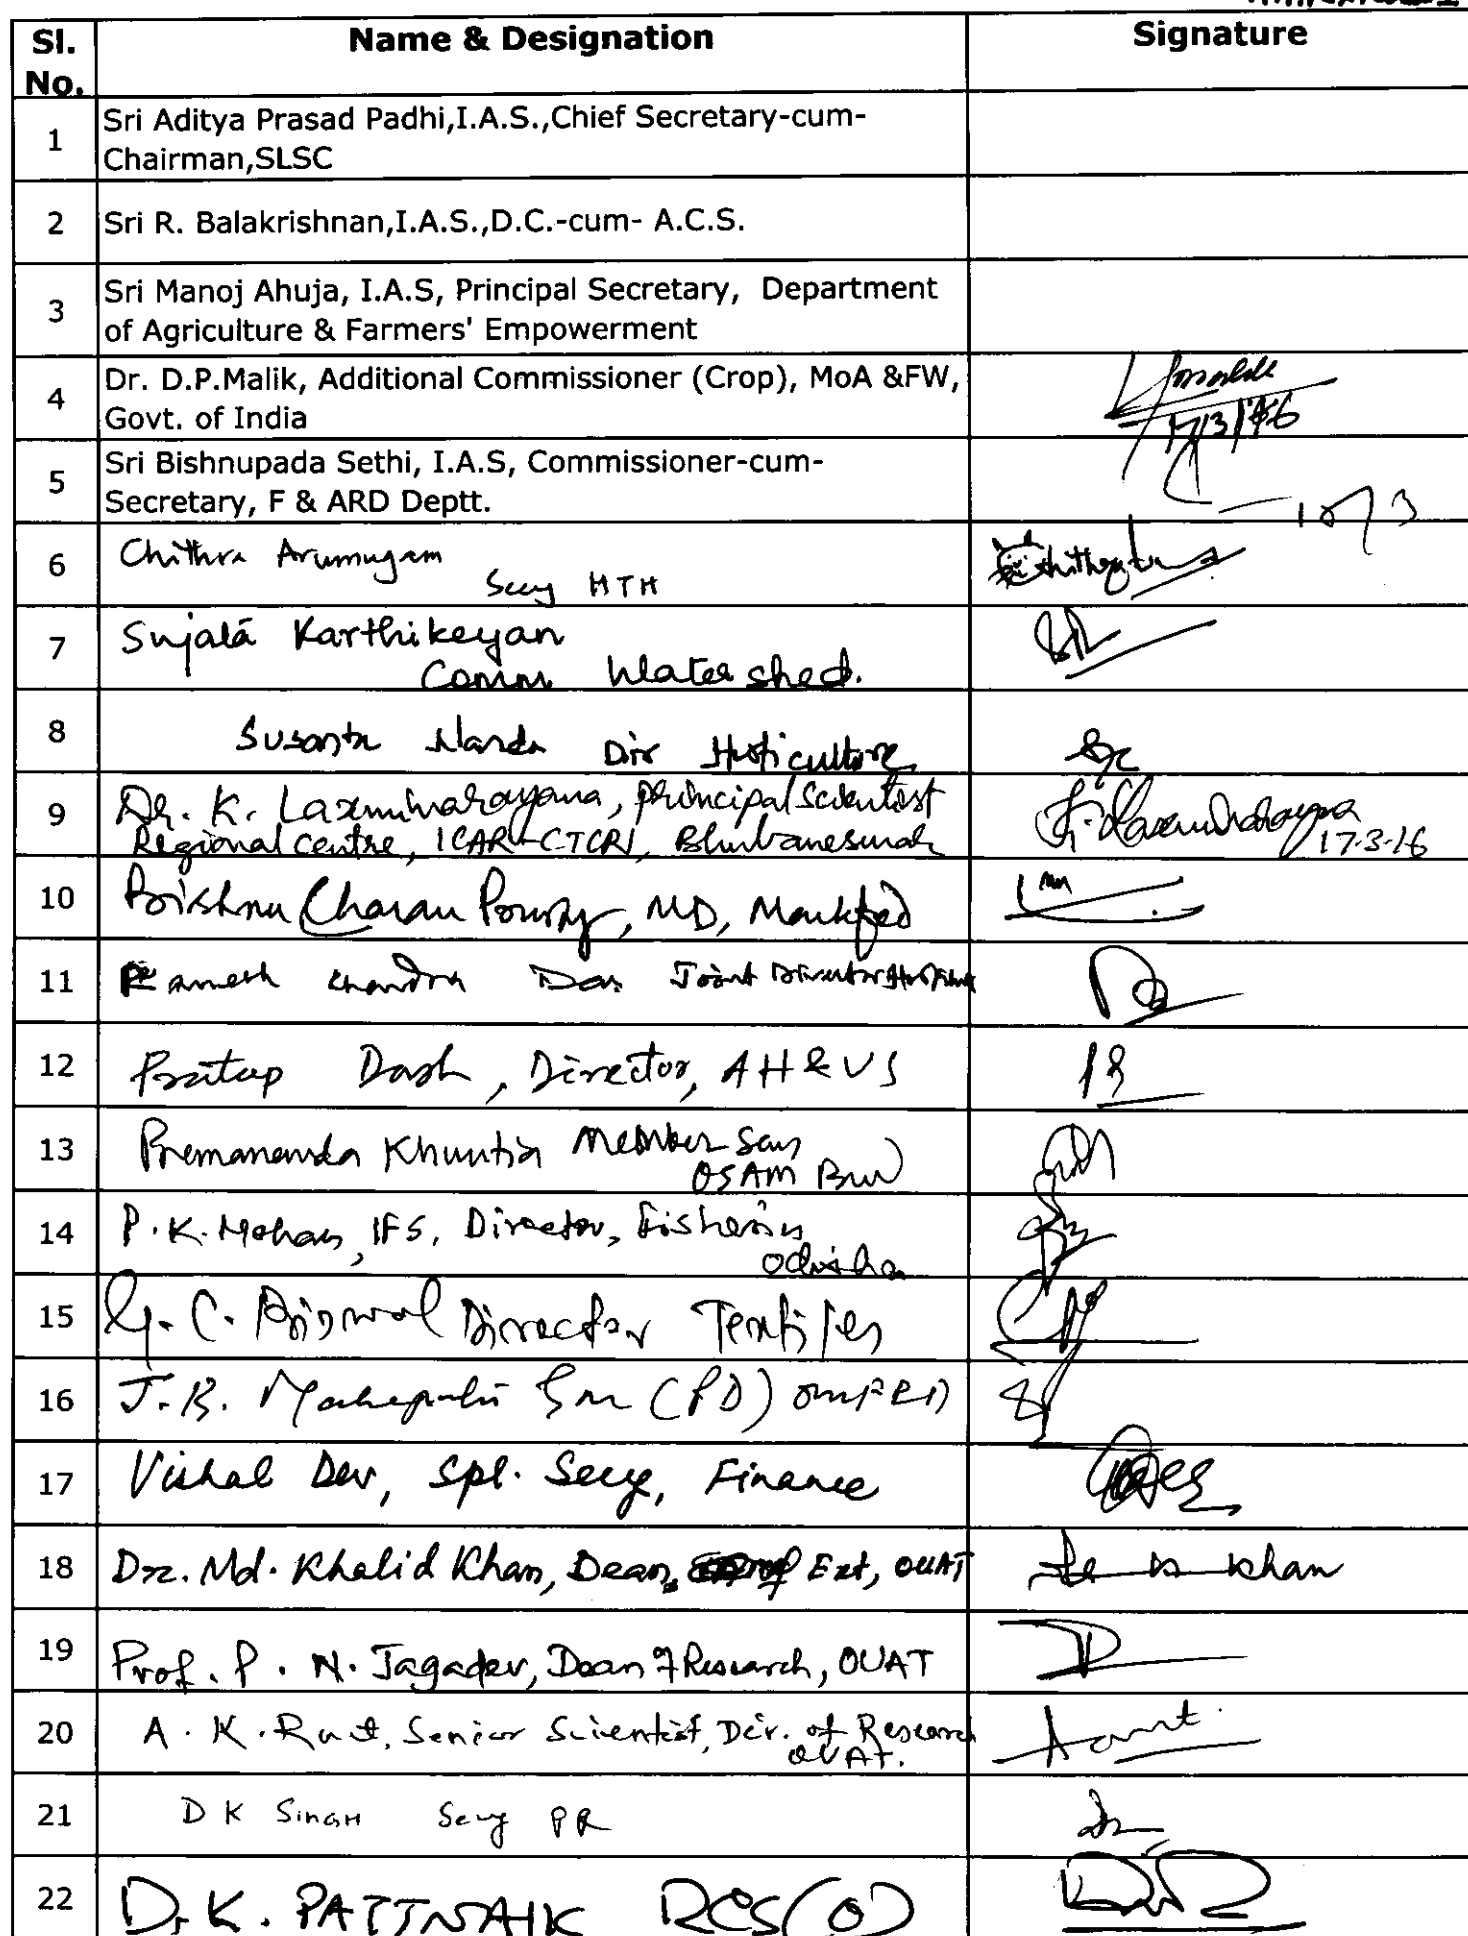 Sl. No. Name & Designation Signature
1 Sri Aditya Prasad Padhi,I.A.S.,Chief Secretary-cum-
Chairman,SLSC
2 Sri R. Balakrishnan,I.A.S.,D.C.-cum- A.C.S.
3 Sri Manoj Ahuja, I.A.S, Principal Secretary, Department
of Agriculture & Farmers' Empowerment
4 Dr. D.P.Malik, Additional Commissioner (Crop), MoA &FW,
Govt. of India
5 Sri Bishnupada Sethi, I.A.S, Commissioner-cum-
Secretary, F & ARD Deptt.
6 Chithra Arumugam
Secy HTH
7 Sujata Karthikeyan
Comm Watershed.
8 Susanta Nanda Dir Horticulture
9 Dr. K. Laxminarayana, Principal Scientist
Regional Centre, ICAR-CTCRI, Bhubaneswar
17-3-16
10 Bishnu Charan MD, Markfed
11 Ramesh Chandra Das Joint Director
12 Pratap Dash, Director, AH&VS
13 Premananda Khuntia Member Secy
OSAM
14 P.K. Mohan, IFS, Director, Fisheries
Odisha
15 G. C. Biswal Director Textiles
16 J. B. (PD) OMFED
17 Vishal Dev, Spl. Secy, Finance
18 Dr. Md. Khalid Khan, Dean, Ext, OUAT khan
19 Prof. P. N. Jagadev, Dean of Research, OUAT
20 A. K. Rout, Senior Scientist, Dir. of Research
OUAT.
21 D K Singh Secy PR
22 D.K. PATTNAIK RCS(O)